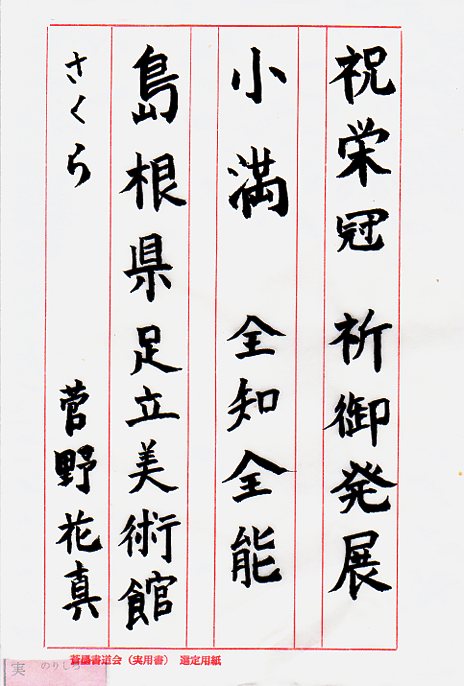 祝栄冠 祈御発展
小満 全知全能
島根県足立美術館
さくら 菅野花真
蒼墨書道会（実用書） 選定用紙
実 のりしろ